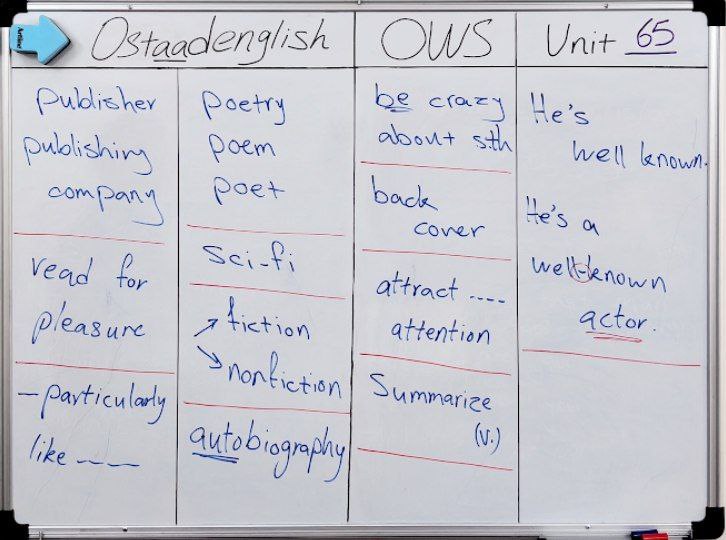 Ostaadenglish
OWS
Unit 65
publisher
publishing
company
read for
pleasure
- particularly
like ----
poetry
poem
poet
sci-fi
fiction
nonfiction
autobiography
be crazy
about sth
back
cover
attract ----
attention
Summarize
(v.)
He's
well known.
He's a
well-known
actor.